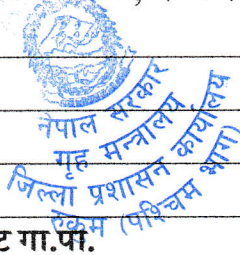 नेपाल सरकार
गृह मन्त्रालय
जिल्ला प्रशासन कार्यालय
रुकुम (पश्चिम भाग)
ट गा.पा.